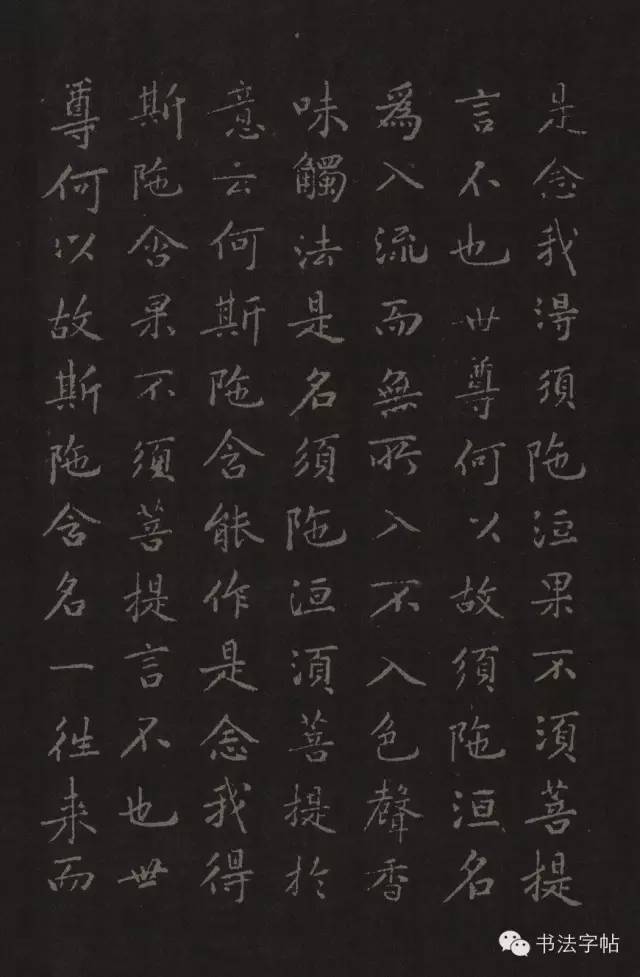 是念我得須陁洹果不須菩提
言不也世尊何以故須陁洹名
為入流而無所入不入色聲香
味觸法是名須陁洹須菩提於
意云何斯陁含能作是念我得
斯陁含果不須菩提言不也世
尊何以故斯陁含名一往来而
书法字帖